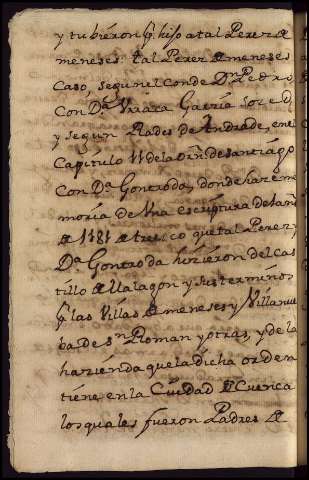 y tubieron pr hijo a tal Perez de
meneses: tal Perez de meneses
Caso, segun el Conde Dn Pedro,
Con Da. Vrraca Garzia
y segun Rades de Andrade, en el
Capitulo 11 de la Orn de Santiago
Con Da Gontroda, donde haze me
moria de Vna escriptura de la
de 1181 de trueco que tal Perez y
Da Gontroda hizieron del Cas
tillo de Malagon y sus terminos
pr las Villas de meneses y Villanue
ba de Sn Roman y otras, y de la
hazienda que la dicha orden
tiene en la Ciudad de Cuenca
los quales fueron Padres de